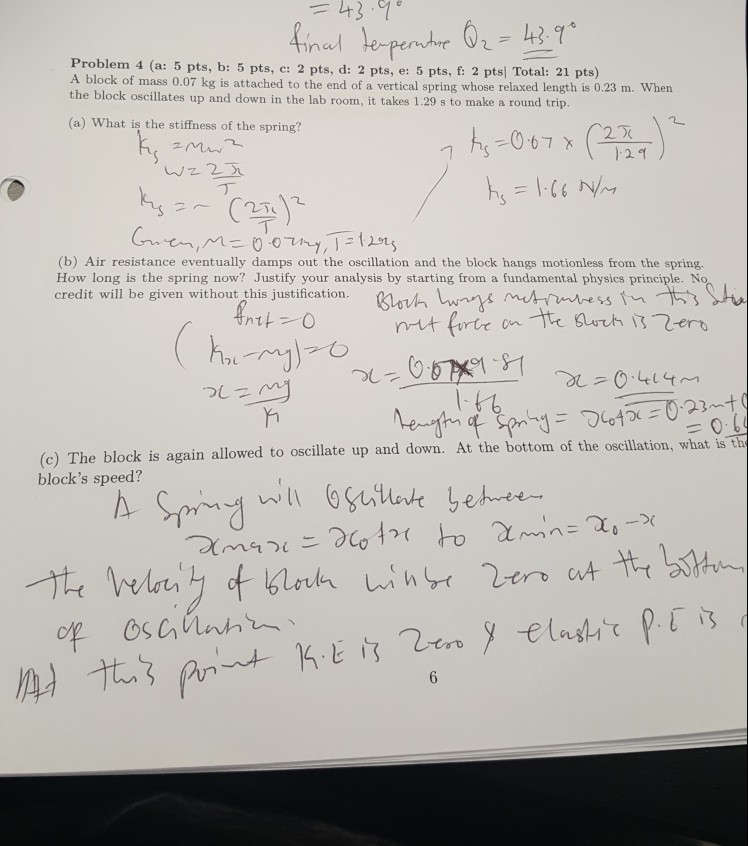 = 43.9°
final temperature Q₂ = 43.9°
Problem 4 (a: 5 pts, b: 5 pts, c: 2 pts, d: 2 pts, e: 5 pts, f: 2 pts| Total: 21 pts)
A block of mass 0.07 kg is attached to the end of a vertical spring whose relaxed length is 0.23 m. When
the block oscillates up and down in the lab room, it takes 1.29 s to make a round trip.
(a) What is the stiffness of the spring?
ks = mω²
ω = 2π/T
ks = m (2π/T)²
Given, M = 0.07kg, T = 1.29s
ks = 0.07 × (2π/1.29)²
ks = 1.66 N/m
(b) Air resistance eventually damps out the oscillation and the block hangs motionless from the spring.
How long is the spring now? Justify your analysis by starting from a fundamental physics principle. No
credit will be given without this justification.
Block hangs motionless in this
net force on the block is zero
fnet = 0
(kx - mg) = 0
x = mg/k
x = 0.07×9.81/1.66
x = 0.414m
length of spring = x₀+x = 0.23m+
= 0.6
(c) The block is again allowed to oscillate up and down. At the bottom of the oscillation, what is the
block's speed?
A Spring will Oscillate between
xmax = x₀+x to xmin = x₀-x
the velocity of block will be zero at the bottom
of oscillation.
At this point K.E is zero & elastic P.E is
6